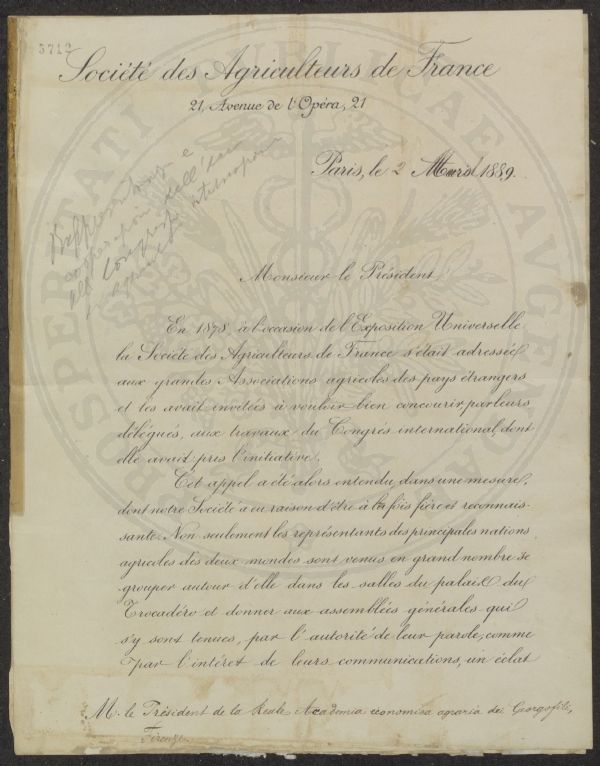 5712
Société des Agriculteurs de France
21, Avenue de l'Opéra, 21
Paris, le 2 1889.
Rappresentanza e
all'
al Congresso internazionale
Monsieur le Président,
En 1878, à l'occasion de l'Exposition Universelle,
la Société des Agriculteurs de France s'était adressée
aux grandes Associations agricoles des pays étrangers
et les avait invitées à vouloir bien concourir, par leurs
délégués, aux travaux du Congrès international, dont
elle avait pris l'initiative.
Cet appel a été alors entendu, dans une mesure,
dont notre Société a eu raison d'être à la fois fière et reconnais-
sante. Non seulement les représentants des principales nations
agricoles des deux mondes sont venus en grand nombre se
grouper autour d'elle dans les salles du palais du
Trocadéro et donner aux assemblées générales qui
s'y sont tenues, par l'autorité de leur parole, comme
par l'intérêt de leurs communications, un éclat
M. le Président de la Reale Academia economica agraria dei Georgofili,
Firenze
PROSPERITATI PUBLICAE AUGENDAE